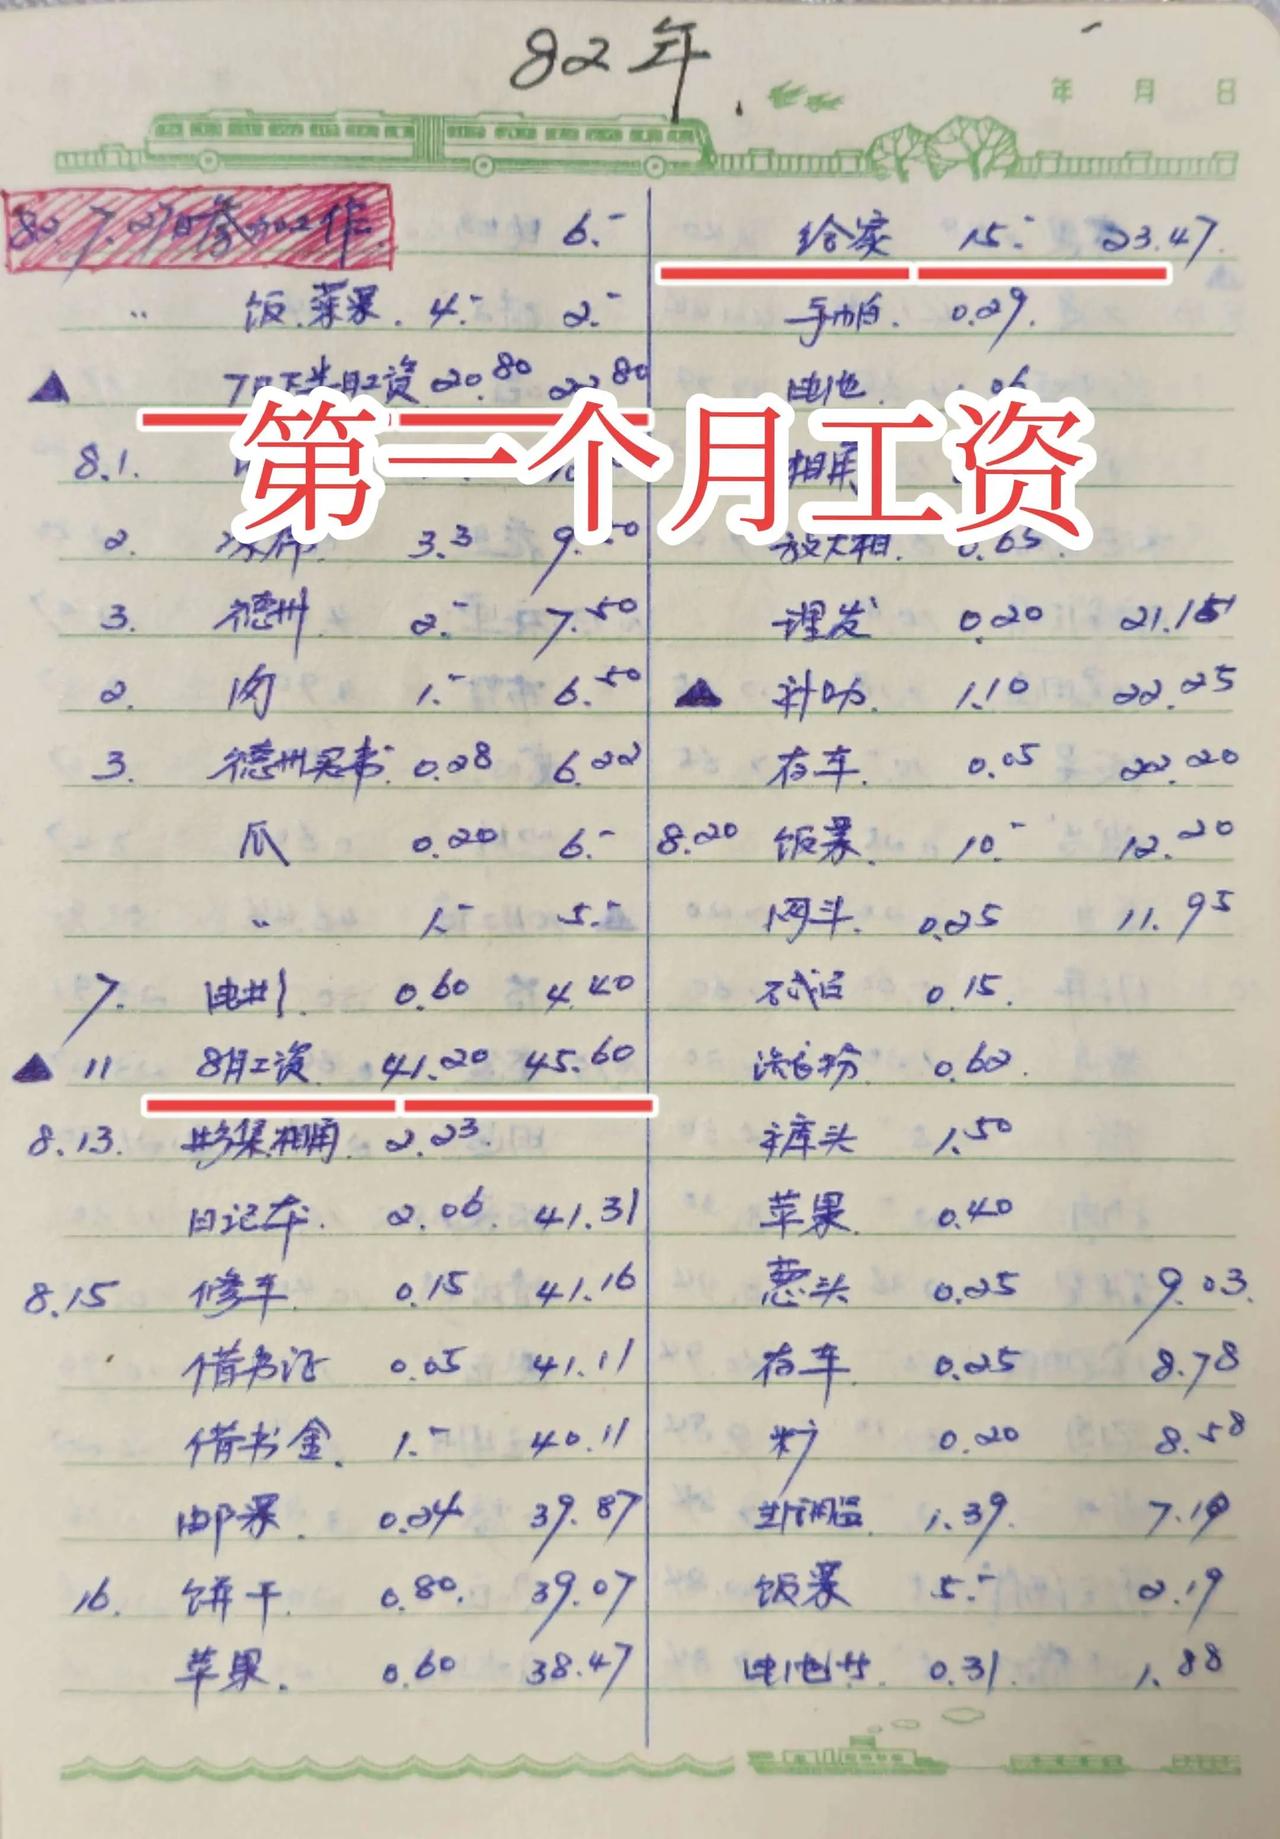 82年.
年 月 日
82.7.27日参加工作. 6.-
〃 饭.菜票. 4.- 2.-
7月下半月工资 20.80 22.80
第一个月工资
8.1.
2. 3.3 9.50
3. 德州 2.- 7.50
2. 肉 1.- 6.50
3. 德州买书. 0.28 6.22
瓜 0.20 6.-
〃 1.- 5.-
7. 0.60 4.40
11 8月工资. 41.20 45.60
8.13. 影集.相角 2.23.
日记本. 2.06. 41.31
8.15 修车. 0.15 41.16
借书证 0.05 41.11
借书金. 1.- 40.11
邮票. 0.24 39.87
16. 饼干. 0.80. 39.07
苹果. 0.60 38.47
给家 15.- 23.47.
手帕. 0.29.
电池. 1.06
相角
放大相. 0.65.
理发 0.20 21.15
补助. 1.10 22.25
存车. 0.05 22.20
8.20 饭票. 10.- 12.20
网斗. 0.25 11.95
0.15.
洗衣粉. 0.62.
1.50
苹果. 0.40
葱头. 0.25 9.03.
存车. 0.25 8.78
0.20 8.58
1.39. 7.19
饭票 5.- 2.19
0.31. 1.88